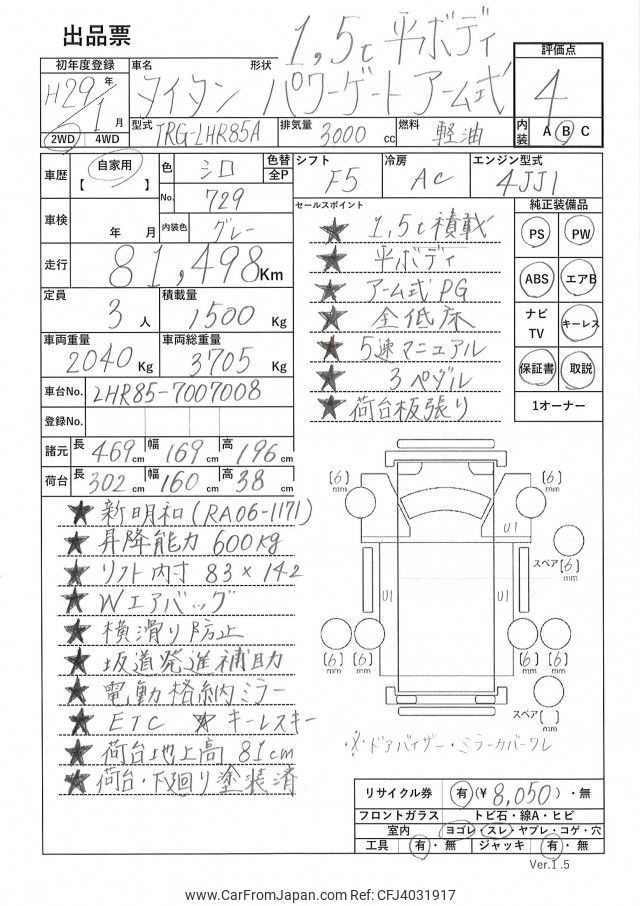 出品票
1,5t 平ボディ
初年度登録 車名 形状 評価点
H29年 1月 タイタン パワーゲートアーム式 4
2WD 4WD 型式 TRG-LHR85A 排気量 3000 cc 燃料 軽油 内装 A B C
車歴 自家用 【 】 色 シロ 色替 全P シフト F5 冷房 AC エンジン型式 4JJ1
No. 729
車検 年 月 内装色 グレー
走行 81,498 Km
定員 積載量
3 人 1500 Kg
車両重量 車両総重量
2040 Kg 3705 Kg
車台No. LHR85-7007008
登録No.
諸元 長 469 cm 幅 169 cm 高 196 cm
荷台 長 302 cm 幅 160 cm 高 38 cm
セールスポイント
★ 1,5t積載
★ 平ボディ
★ アーム式PG
★ 全低床
★ 5速マニュアル
★ 3ペダル
★ 荷台板張り
純正装備品
PS PW
ABS エアB
ナビ TV キーレス
保証書 取説
1オーナー
★ 新明和(RA06-1171)
★ 昇降能力 600Kg
★ リフト内寸 83×142
★ Wエアバッグ
★ 横滑り防止
★ 坂道発進補助
★ 電動格納ミラー
★ ETC ★ キーレスキー
★ 荷台地上高 81cm
★ 荷台・下回り塗装済
[6] mm [6] mm
U1
スペア [6] mm
U1 U1
[6] mm [6] mm [6] mm [6] mm
スペア [ ] mm
※ドアバイザー・ミラーカバーワレ
リサイクル券 有 (¥ 8,050) ・無
フロントガラス トビ石・線A・ヒビ
室内 ヨゴレ・スレ・ヤブレ・コゲ・穴
工具 有・無 ジャッキ 有・無
Ver.1.5
www.CarFromJapan.com Ref: CFJ4031917